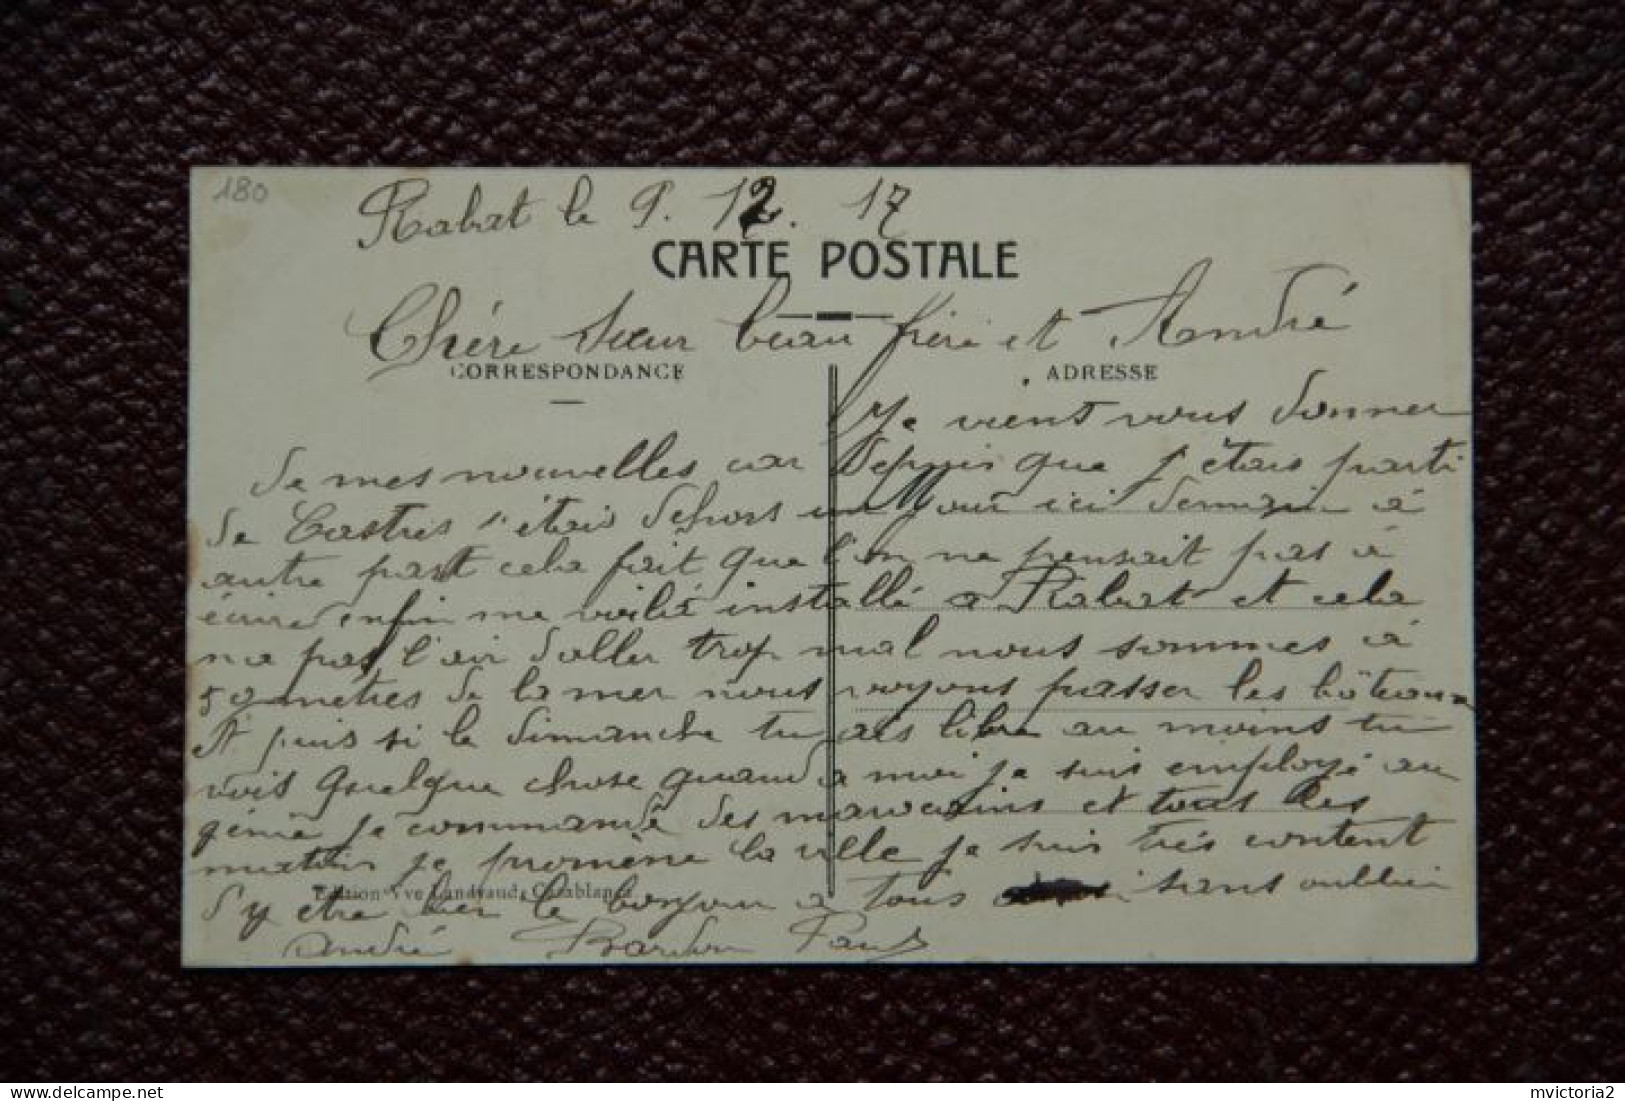 180
Rabat le 9. 12. 17
CARTE POSTALE
Chère sœur beau frère et André
CORRESPONDANCE
ADRESSE
Je vient vous donner
de mes nouvelles car depuis que j'étais parti
de Castres s'étais dehors un jour ici demain à
autre part cela fait que l'on ne pensait pas à
écrire enfin me voilà installé a Rabat et cela
na pas l'air d'aller trop mal nous sommes à
50 mètres de la mer nous voyons passer les bâteaux
Et puis si le dimanche tu ais libre au moins tu
vois quelque chose quand a moi je suis employé au
génie je commande des marocains et tous les
matin je promène la ville je suis très content
Edition Vve Landvaud, Casablanca
d'y etre bien le bonjour a tous sans oublier
André Bardou Paul
mvictoria2